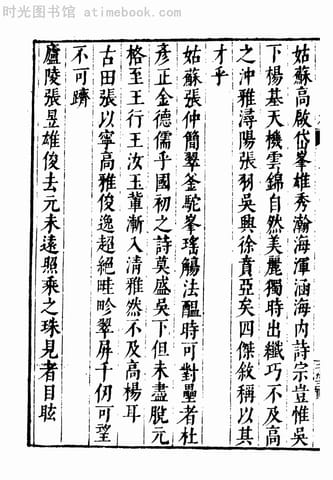 时光图书馆 - atimebook.com
姑蘇高啟岱峯雄秀瀚海渾涵海内詩宗豈惟吳
下楊基天機雲錦自然美麗獨時出纖巧不及高
之沖雅潯陽張羽吳興徐賁亞矣四傑敘稱以其
才乎
姑蘇張仲簡翠釜駝峯瑤觴法醞時可對壘者杜
彥正金德儒乎國初之詩莫盛吳下但未盡脫元
格至王行王汝玉輩漸入清雅然不及高楊耳
古田張以寧高雅俊逸超絶畦畛翠屏千仞可望
不可躋
廬陵張昱雄俊去元未遠照乘之珠見者目眩